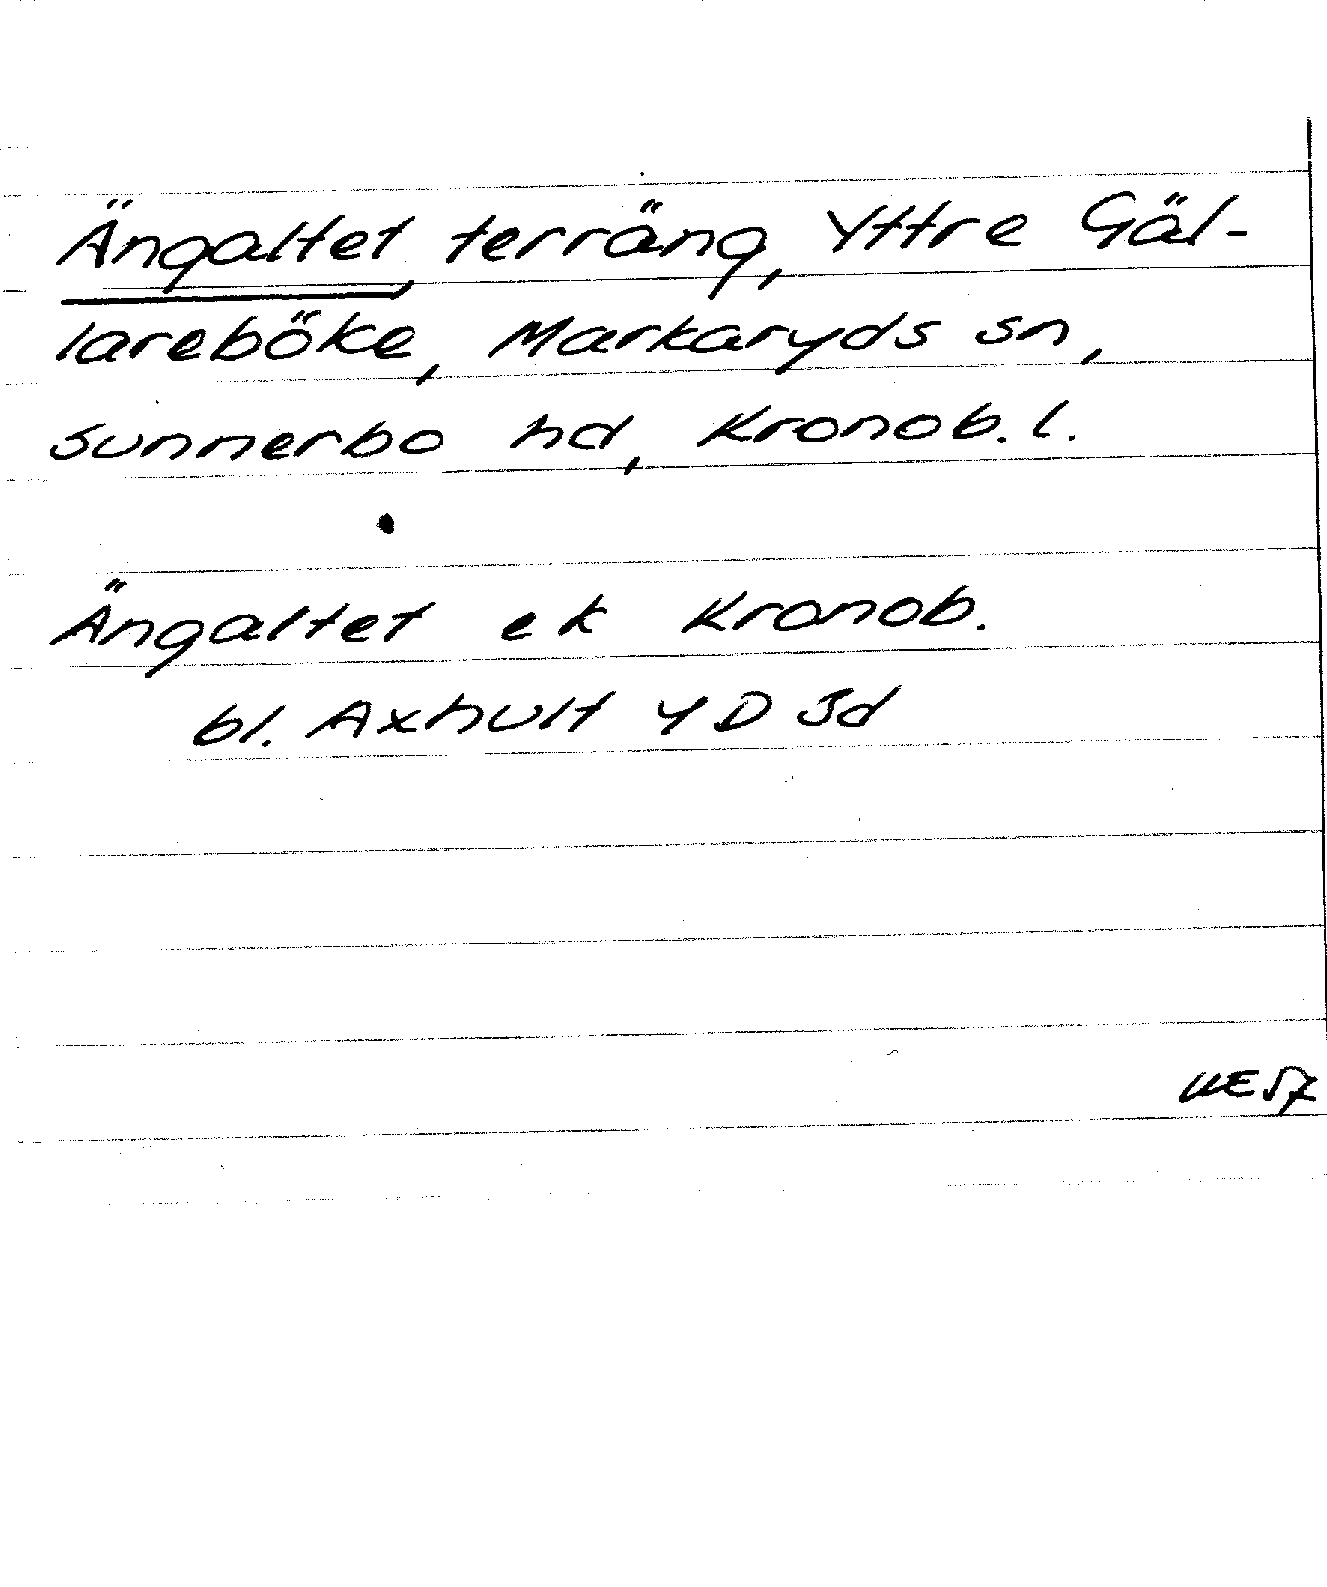 Ängaltet terräng, Yttre Gäl-
lareböke, Markaryds sn,
Sunnerbo hd, Kronob. l.
Ängaltet ek Kronob.
bl. Axhult 4D 3d